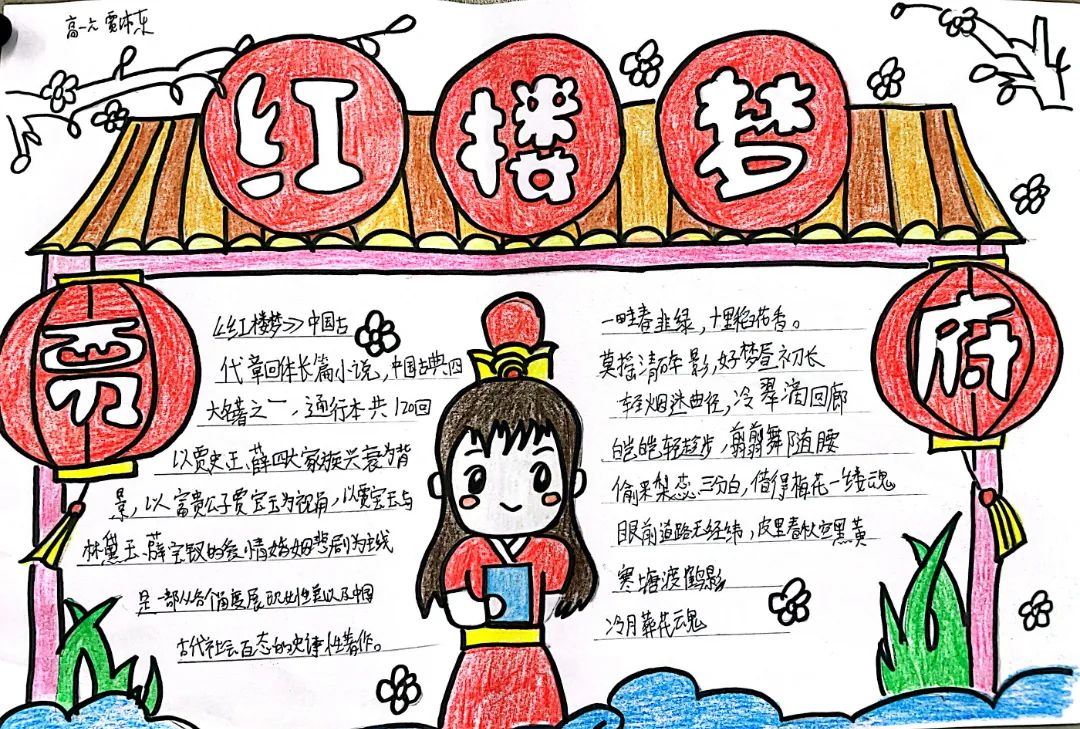 高一六
红楼梦
贾
府
《红楼梦》中国古
代章回体长篇小说,中国古典四
大名著之一,通行本共120回
以贾史王、薛四大家族兴衰为背
景,以富贵公子贾宝玉为视角,以贾宝玉与
林黛玉、薛宝钗的爱情婚姻悲剧为主线
是一部从各个角度展现女性美以及中国
古代社会百态的史诗性著作。
一畦春韭绿,十里稻花香。
莫摇清碎影,好梦昼初长
轻烟迷曲径,冷翠滴回廊
皑皑轻趁步,翦翦舞随腰
偷来梨蕊三分白,借得梅花一缕魂
眼前道路无经纬,皮里春秋空黑黄
寒塘渡鹤影
冷月葬花魂